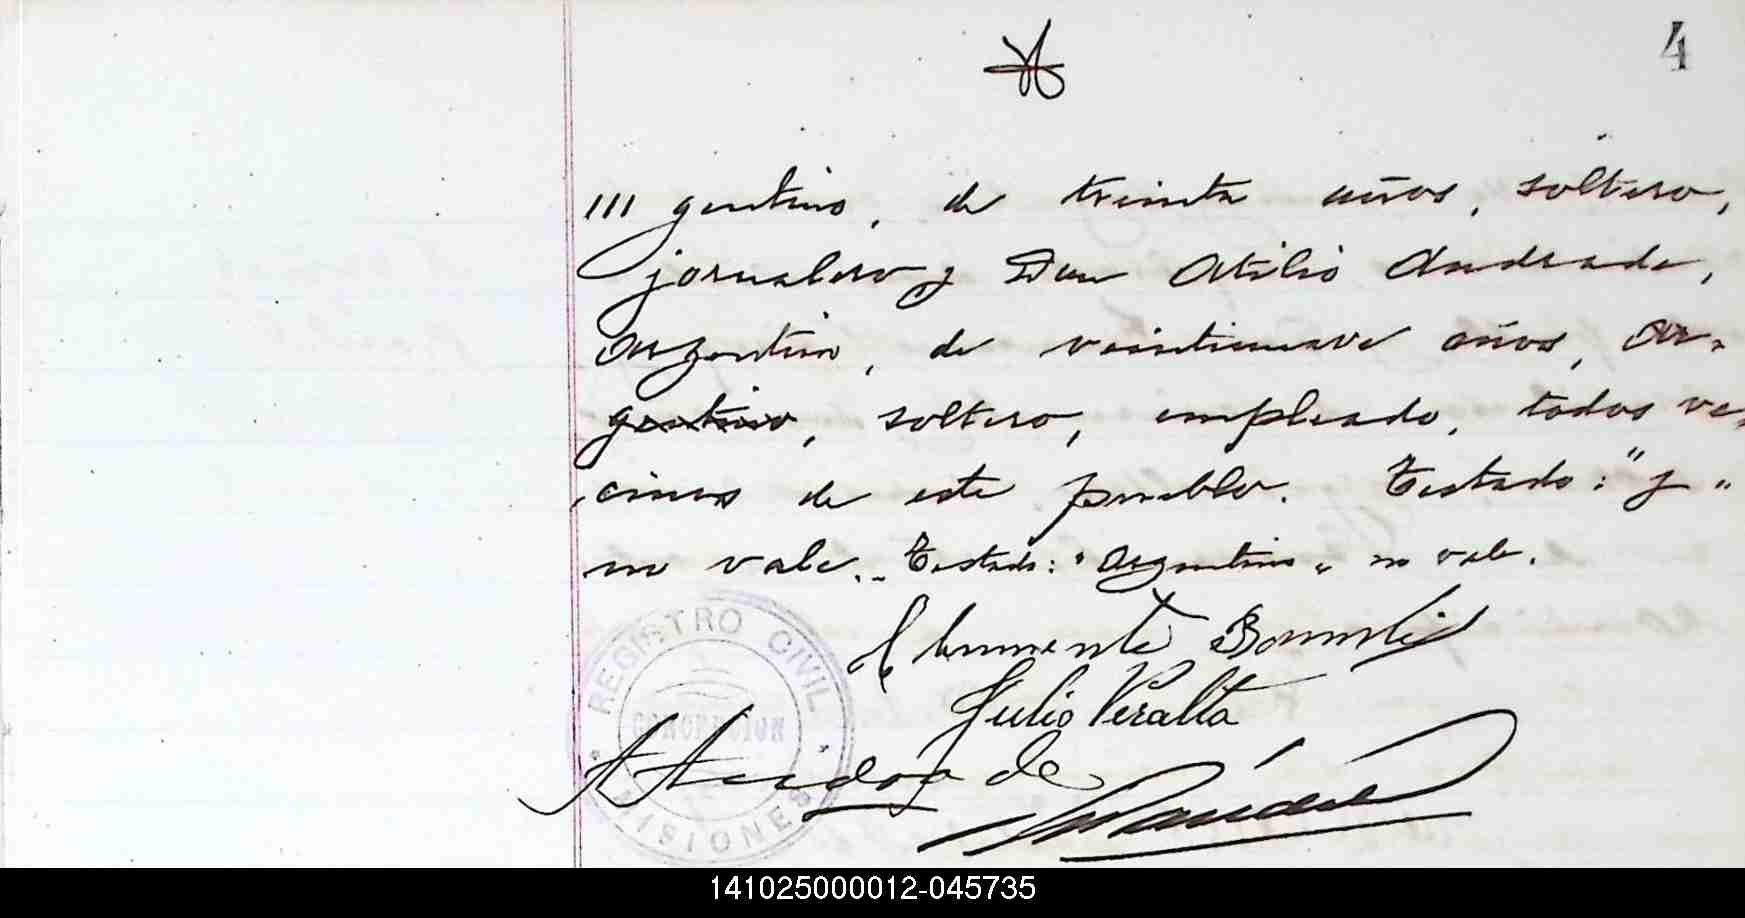 4
///gentino, de treinta años, soltero,
jornalero y Don Atilio Andrade,
argentino, de veintinueve años, ar-
gentino, soltero, empleado, todos ve-
cinos de este pueblo. Testado: "y"
no vale.- Testado: "argentino" no vale.
Julio Peralta
de
REGISTRO CIVIL
CONCEPCION
MISIONES
141025000012-045735